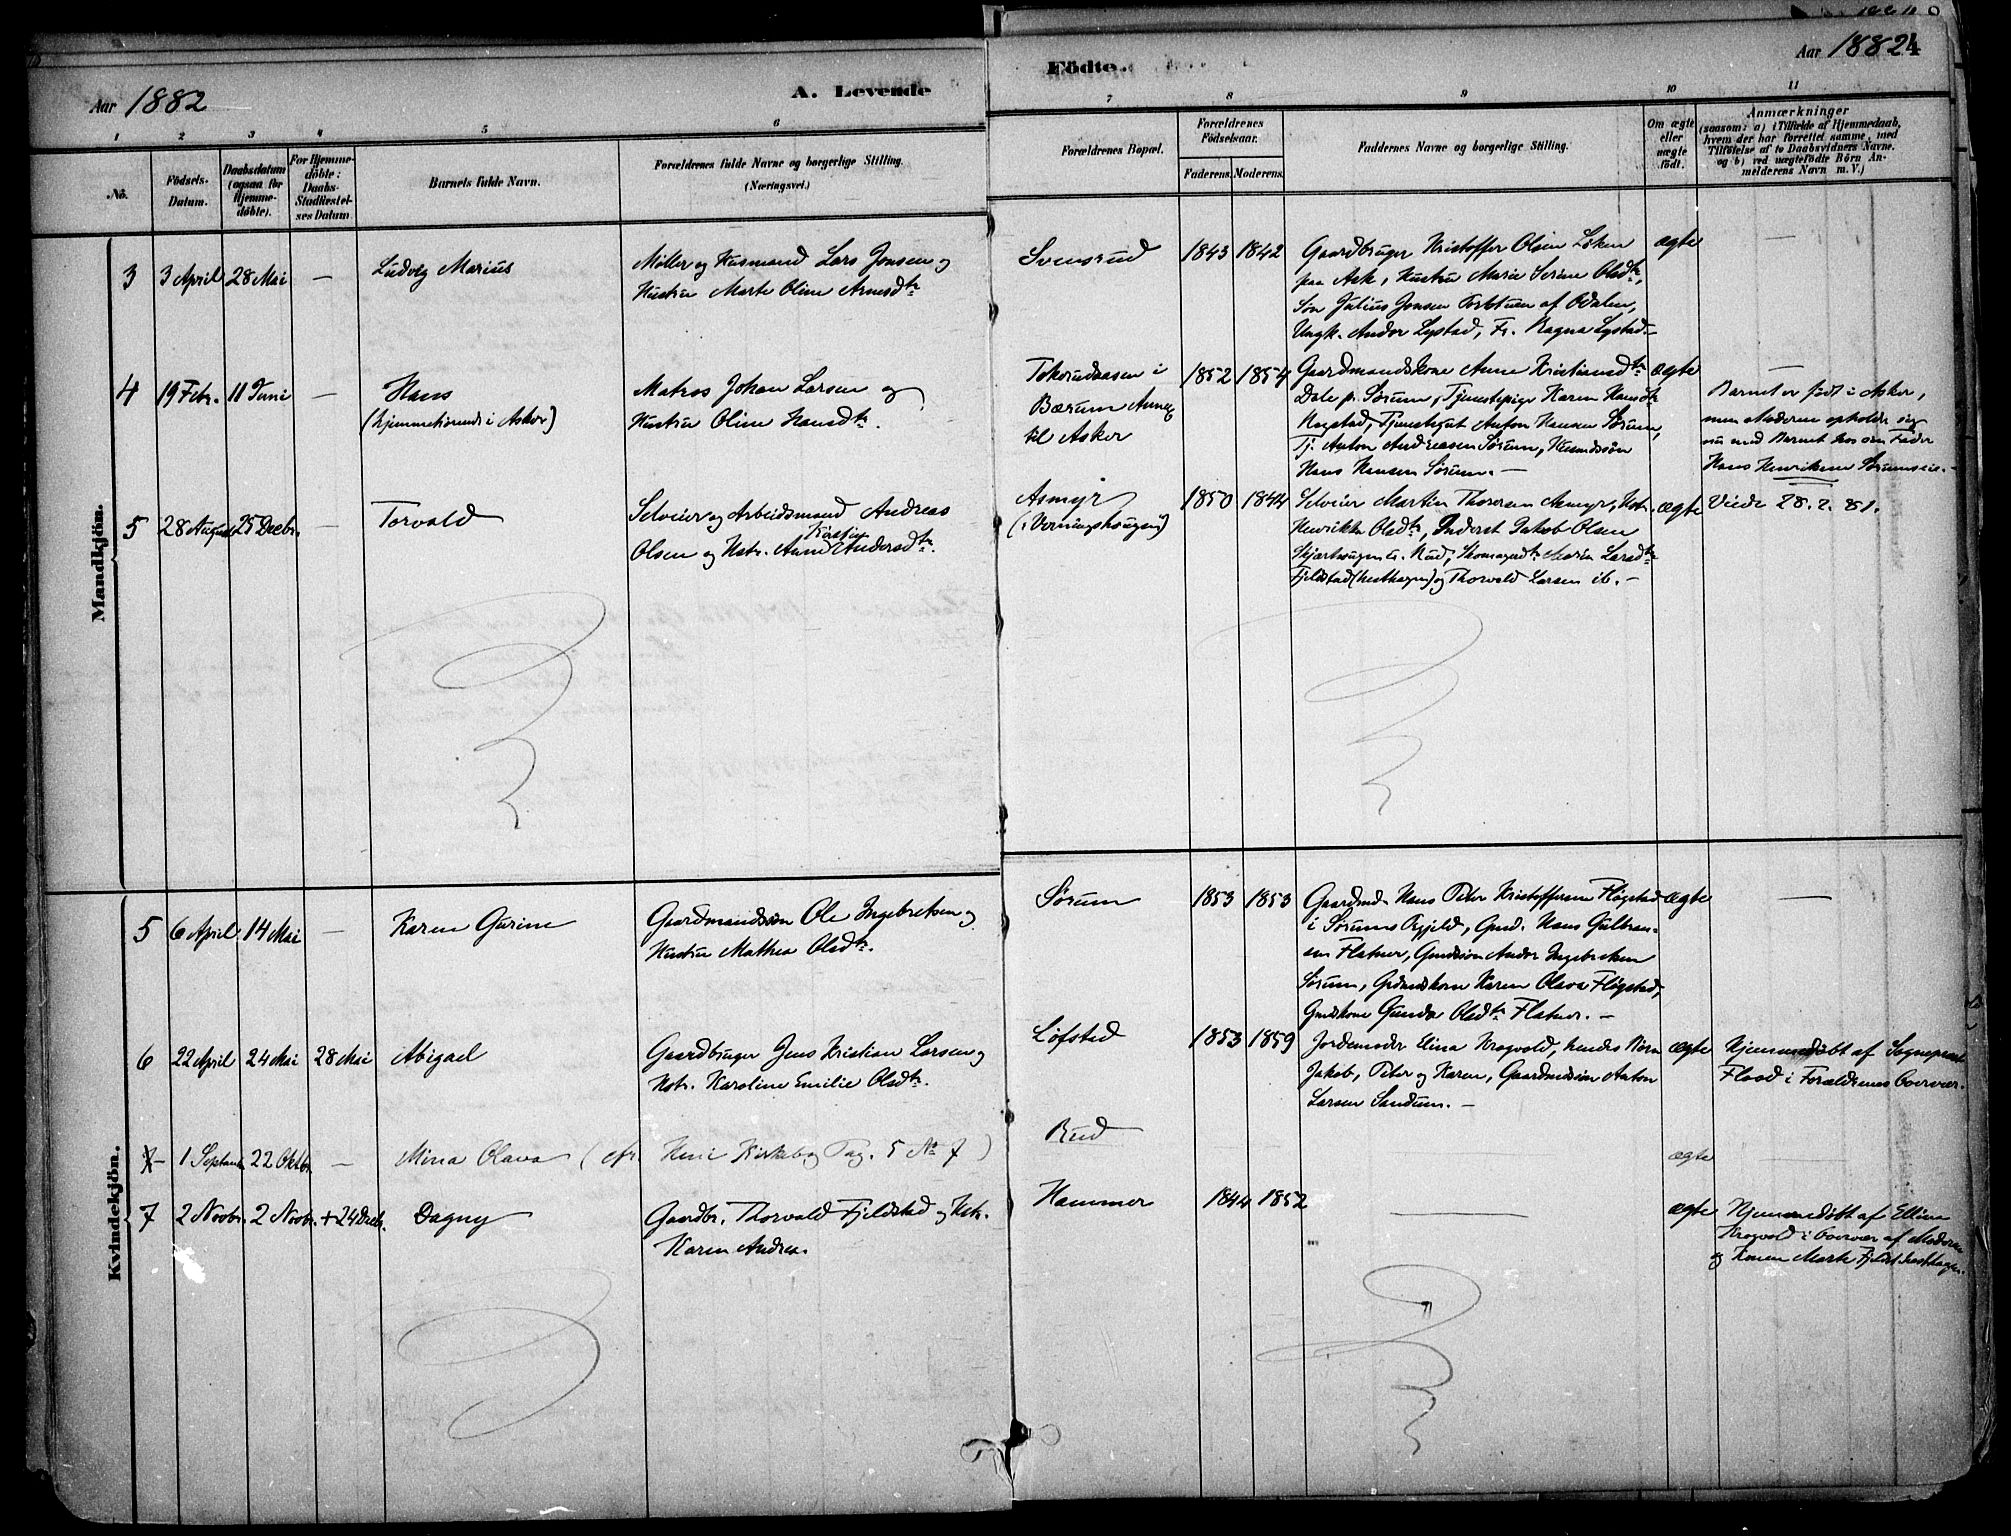 Aar 1882
A. Levende
Födte.
Aar 1882
4
1 2 3 4 5 6 7 8 9 10 11
No.
Födsels-
Datum.
Daabsdatum
(ogsaa for
Hjemme-
döbte).
For Hjemme-
döbte:
Daabs-
Stadfæstel-
ses Datum
Barnets fulde Navn.
Forældrenes fulde Navne og borgerlige Stilling.
(Næringsvei.)
Forældrenes Bopæl.
Forældrenes
Födselsaar.
Faderens. Moderens.
Faddernes Navne og borgerlige Stilling.
Om ægte
eller
uægte
födt.
Anmærkninger
(saasom: a) i Tilfælde af Hjemmedaab,
hvem der har forrettet samme, med
Tilföielse af to Daabsvidners Navne.
og b) ved uægtefödte Börn An-
melderens Navn m. V.)
Mandkjön.
3 3 April 28 Mai — Ludvig Marius
Møller og Husmand Lars Jonsen og
Hustru Marte Oline Arnesdtr
Svensrud 1843 1842
Gaardbruger Kristoffer Olsen Løken
paa Ask, Hustru Marie Serine Olsdtr,
Søn Julius Jonsen af Odalen,
Ungk. Andor Lystad, Fr. Ragna Lystad. —
ægte —
4 19 Febr. 11 Juni — Hans
(hjemme i Asker)
Matros Johan Larsen og
Hustru Oline Hansdtr.
i
Bærum Annex
til Asker
1852 1854
Gaardmandskone Anne Kristiansdtr
Dale p. Sørum, Tjenestepige Karen Hansdtr
Tjenestegut Anton Hansen Sørum,
Tj. Anton Andreasen Sørum, Husmdssøn
Hans Hansen Sørum. —
ægte —
Barnet er født i Asker,
men Moderen opholder sig
nu med Barnet hos sin Fader
Hans Henriksen
5 28 August 25 Decbr. — Torvald
Selveier og Arbeidsmand Andreas
Kirstine
Olsen og Hstr. Anne Andersdtr.
Asmyr
1850 1844
Selveier Martin Thoresen Asmyr, Hstr.
Henrikke Olsdtr, Inderst Jakob Olsen
Larsdtr
Fjeldstad (hesthagen) og Thorvald Larsen ib. —
ægte Viede 28. 2. 81.
Kvindekjön.
5 6 April 14 Mai — Karen Gurine
Gaardmandssøn Ole Ingebretsen og
Hustru Mathea Olsdtr.
Sørum 1853 1853
Gaardmd Hans Peter Kristoffersen Fløgstad
i Sørums Prgjeld, Gmd. Hans Gulbran-
sen Flatner, Gmdssøn Andor Ingebretsen
Sørum, Grdmdskone Karen Olava Fløgstad,
Gmdskone Gunda Olsdtr Flatner. —
ægte —
6 22 April 24 Mai 28 Mai Abigael
Gaardbruger Jens Kristian Larsen og
Hstr. Karoline Emilie Olsdtr.
Løfsted 1853 1859
Jordemoder Elina Krogvold, hendes Børn
Jakob, Peter og Karen, Gaardmdssøn Anton
Larsen Sandum. —
ægte
Hjemmedøbt af Sognepræst
Flood i Forældrenes Overvær.
7 — 1 Septembr 22 Oktbr. — Mina Olava (cfr. Kirkebog Pag. 5 No 7)
Rud
ægte —
7 2 Novbr. 2 Novbr. + 24 Decbr. Dagny
Gaardbr. Thorvald Fjeldstad og Hstr.
Karen Andrea.
Hammer 1844 1852
—
ægte
Hjemmedøbt af Ellina
Krogvold i Overvær af Moderen
og Konen Marte